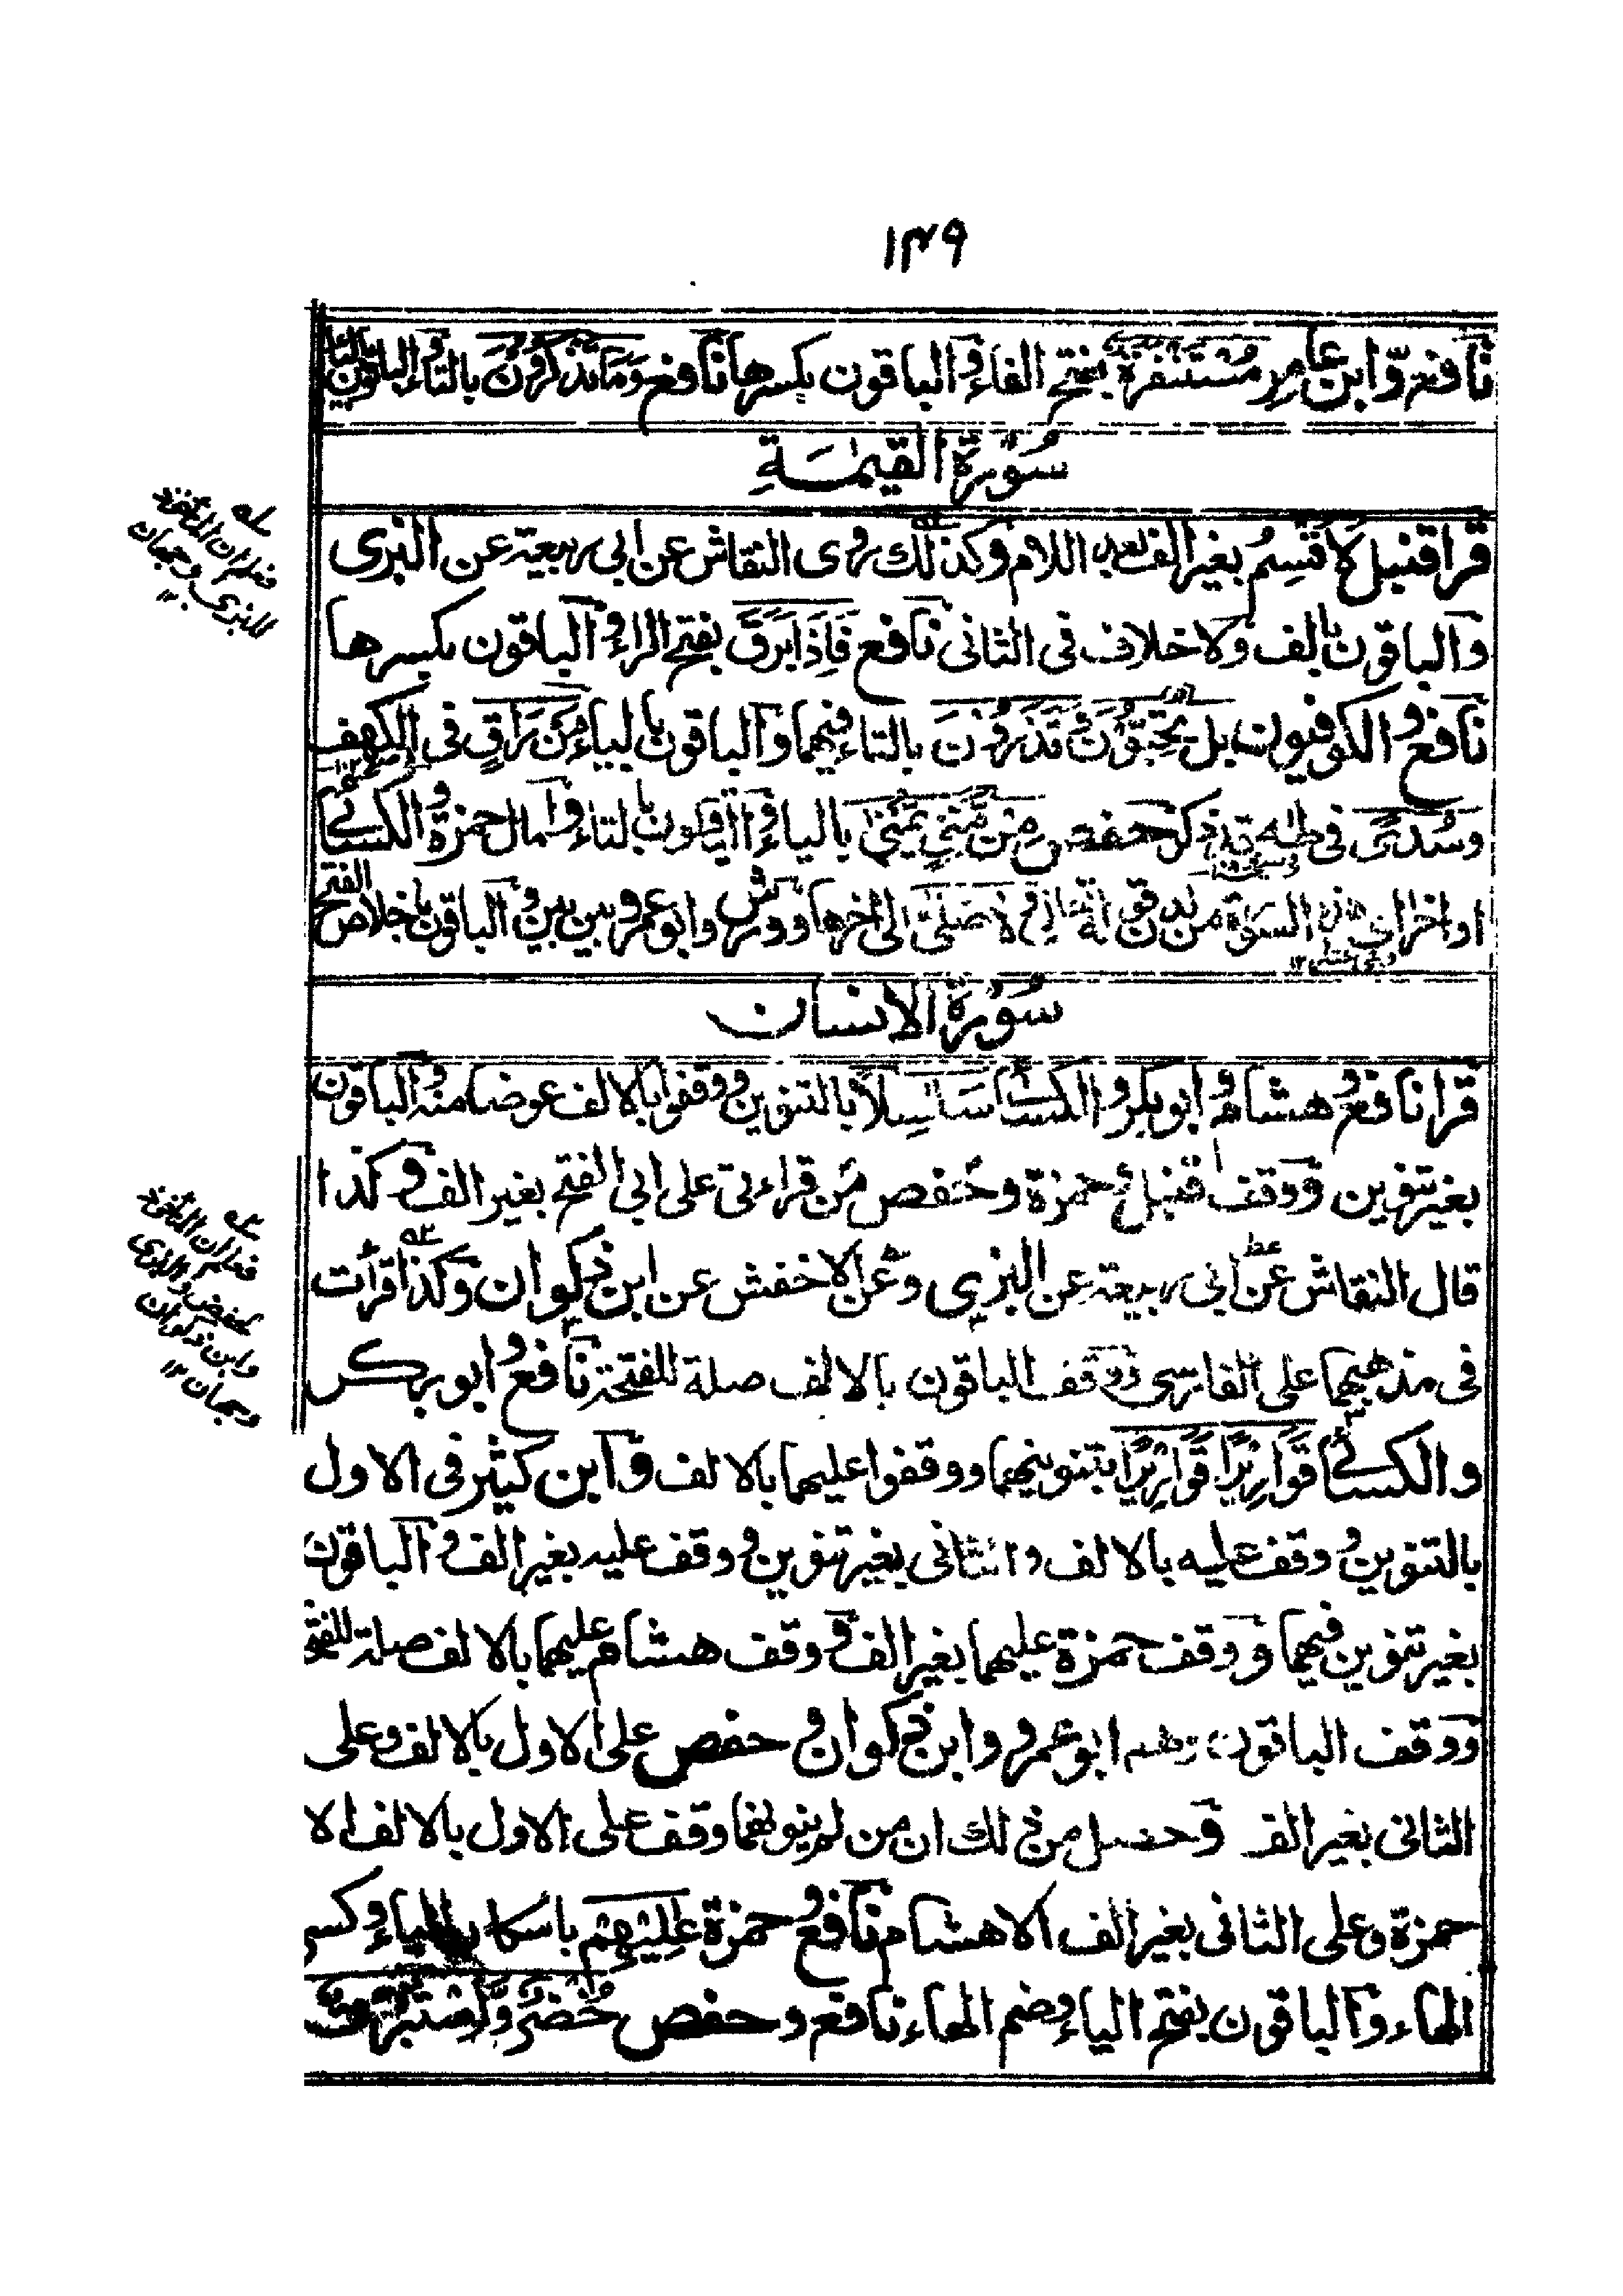 ١٤٩
نافع وابن عامر مُسْتَنفَرَة بفتح الفاء والباقون بكسرها نافع وَمَا تَذْكُرُونَ بالتاء والباقون بالياء
سُوْرَة القِيٰمَةِ
قرا قنبل لَاُقْسِمُ بغير الف بعد اللام وكذلك روى النقاش عن ابى ربيعة عن البزى
والباقون بالف ولا خلاف فى الثانى نافع فَاِذَا بَرَقَ بفتح الراء والباقون بكسرها
نافع والكوفيون بل تُحِبُّوْنَ وتَذَرُوْنَ بالتاء فيهما والباقون بالياء مَنْ رَاقٍ فى الكهف
وسُدًى فى طٰه قد ذكر حفص مِنْ مَّنِيٍّ يُّمْنٰى بالياء والباقون بالتاء وامال حمزة والكسائى
اواخر اى هذه السورة من لدن قوله تعالى فلا صَدَّقَ ولا صَلّٰى الى اخرها وورش وابو عمرو بين بين والباقون باخلاص الفتح
سُوْرَة الانسان
قرا نافع وهشام وابو بكر والكسائى سَلَاسِلًا بالتنوين ووقفوا بالالف عوضا منه والباقون
بغير تنوين ووقف قنبل وحمزة وحفص من قراءتى على ابى الفتح بغير الف وكذا
قال النقاش عن ابى ربيعة عن البزى وعن الاخفش عن ابن ذكوان وكذا قرأت
فى مذهبهما على الفارسى ووقف الباقون بالالف صلة للفتحة نافع وابو بكر
والكسائى قَوَارِيْرًا قَوَارِيْرًا بتنوينهما ووقفوا عليهما بالالف وابن كثير فى الاول
بالتنوين ووقف عليه بالالف والثانى بغير تنوين ووقف عليه بغير الف والباقون
بغير تنوين فيهما ووقف حمزة عليهما بغير الف ووقف هشام عليهما بالالف صلة للفتحة
ووقف الباقون وهم ابو عمرو وابن ذكوان وحفص على الاول بالالف وعلى
الثانى بغير الف وحصل من ذلك ان من لم ينونهما وقف على الاول بالالف الا
حمزة وعلى الثانى بغير الف الا هشام نافع وحمزة عٰلِيْهِمْ باسكان الياء وكسر
الهاء والباقون بفتح الياء وضم الهاء نافع وحفص خُضْرٌ وَّاِسْتَبْرَقٌ
فعلم ان الماخوذ
للبزى وجهان
فعلم ان الماخوذ
لحفص والبزى
وابن ذكوان
وجهان ١٢